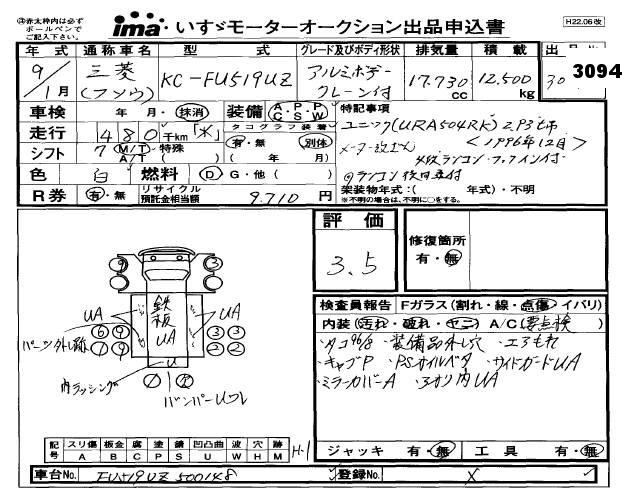 ㊟赤太枠内は必ず
ボールペンで
ご記入下さい。
ima いすゞモーターオークション出品申込書
H22.06改
年式 通称車名 型式 グレード及びボディ形状 排気量 積載 出品No.
9年 1月 三菱(フソウ) KC-FU519UZ アルミボデークレーン付 17.730cc 12.500kg 30 3094
車検 年・月・抹消 装備 A・P・P C・S・W
走行 480千km「水」 タコグラフ装着 有・無 別体
シフト 7 M/T A/T 特殊( ) ( 年 月)
色 白 燃料 D G・他( )
R券 有・無 リサイクル預託金相当額 9.710円
特記事項
ユニック(URA504RK)2.93t吊
<1996年12月>
4段ラジコン・フックイン付
ラジコン後日送付
架装物年式:( 年式)・不明
※不明の場合は、不明に○をする。
評価
3.5
修復箇所
有・無
鉄板
UA UA UA
パーツ外し跡
内ラッシング
U
バンパーUワレ
検査員報告 Fガラス(割れ・線・点傷・イバリ)
内装(汚れ・破れ・ヤニ) A/C(要点検)
・タコ96/8 ・装備品外し穴 ・エアもれ
・キャブP ・PSオイルベタ ・サイドガードUA
・ミラーカバーA ・アオリ内UA
ジャッキ 有・無 工具 有・無
記号 スリ傷 板金 腐 塗 錆 凹凸曲 波 穴 跡
A B C P S U W H M
H-1
車台No. FU519UZ 500148 登録No. X